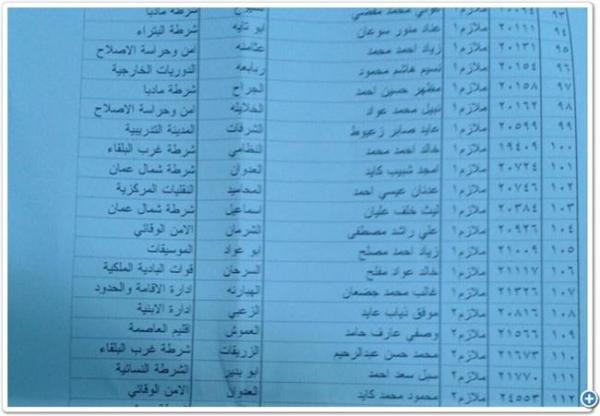 ٩٣ ملازم١ ٢٠٠٦٤ محمد مفضي شرطة مادبا
٩٤ ملازم١ ٢٠١١١ عناد منور سوعان ابو تايه شرطة البتراء
٩٥ ملازم١ ٢٠١٣١ زياد احمد محمد عثامنه امن وحراسة الاصلاح
٩٦ ملازم١ ٢٠١٥٤ نسيم هاشم محمود ربابعه الدوريات الخارجية
٩٧ ملازم١ ٢٠١٥٨ مظهر حسين احمد الجراح شرطة مادبا
٩٨ ملازم١ ٢٠١٦٢ نبيل محمد عواد الخلايله امن وحراسة الاصلاح
٩٩ ملازم١ ٢٠٥٩٩ عايد صابر زعيوط الشرفات المدينة التدريبية
١٠٠ ملازم١ ١٩٤٠٩ خالد احمد محمد النظامي شرطة غرب البلقاء
١٠١ ملازم١ ٢٠٧٢٤ امجد شبيب كايد العدوان شرطة شمال عمان
١٠٢ ملازم١ ٢٠٧٤٦ عدنان عيسى احمد المحاميد النقليات المركزية
١٠٣ ملازم١ ٢٠٣٨٤ ليث خلف عليان اسماعيل شرطة شمال عمان
١٠٤ ملازم١ ٢٠٩٢٦ علي راشد مصطفى الشرمان الامن الوقائي
١٠٥ ملازم١ ٢١٠٠٩ زياد احمد مصلح ابو عواد الموسيقات
١٠٦ ملازم١ ٢١١١٧ خالد عواد مفلح السرحان قوات البادية الملكية
١٠٧ ملازم١ ٢١٣٢٦ غالب محمد جضعان الهبارنه ادارة الاقامة والحدود
١٠٨ ملازم٢ ٢٠٨١٦ موفق ذياب عايد الزعبي ادارة الابنية
١٠٩ ملازم٢ ٢١٥٦٦ وصفي عارف حامد العموش اقليم العاصمة
١١٠ ملازم٢ ٢١٦٧٣ محمد حسن عبدالرحيم الزريقات شرطة غرب البلقاء
١١١ ملازم٢ ٢١٧٧٠ سبل سعد احمد ابو بندير الشرطة النسائية
١١٢ ملازم٢ ٢٤٥٥٣ محمود محمد كايد العدوان الامن الوقائي